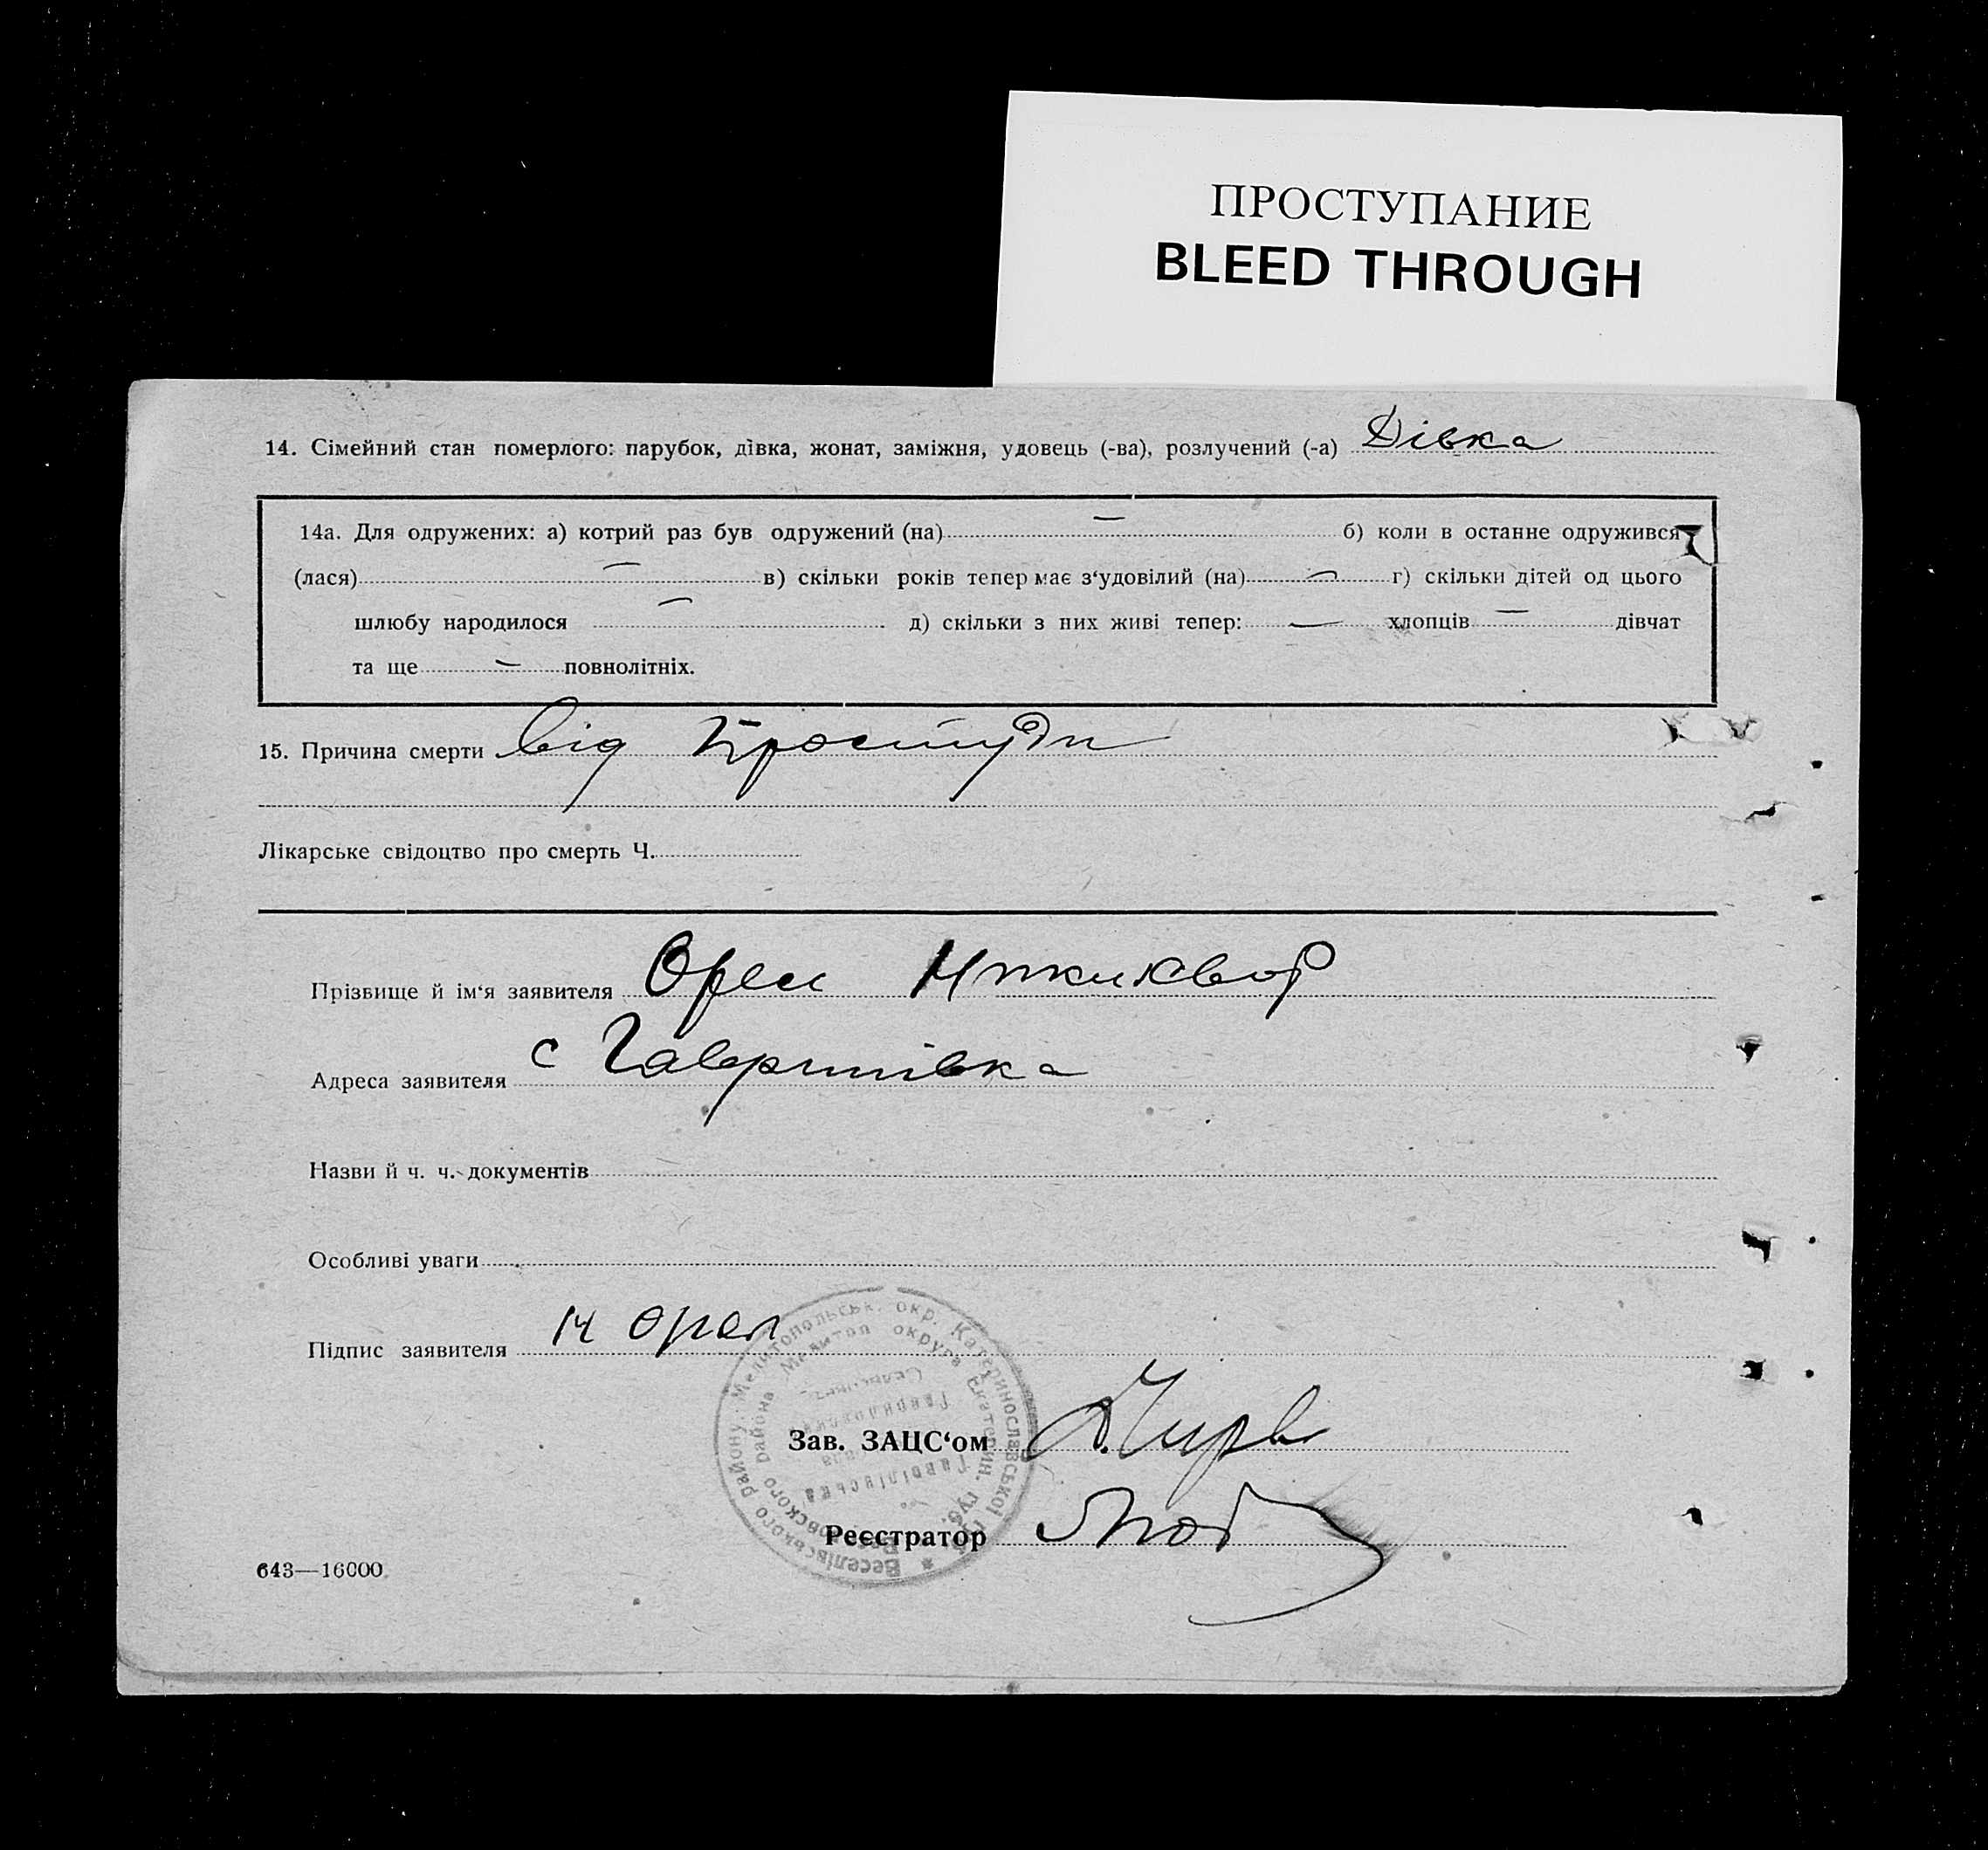 ПРОСТУПАНИЕ
BLEED THROUGH
14. Сімейний стан померлого: парубок, дівка, жонат, заміжня, удовець (-ва), розлучений (-а) Дівка
14а. Для одружених: а) котрий раз був одружений (на) — б) коли в останне одружився
(лася) — в) скільки років тепер має з‘удовілий (на) — г) скільки дітей од цього
шлюбу народилося — д) скільки з них живі тепер: — хлопців — дівчат
та ще — повнолітніх.
15. Причина смерти Від Простуди
Лікарське свідоцтво про смерть Ч.
Прізвище й ім‘я заявителя Орел
Адреса заявителя с Гаврилівка
Назви й ч. ч. документів
Особливі уваги
Підпис заявителя Н Орел
Веселівського району Мелитопольськ. окр. Катеринославської губ.
Зав. ЗАЦС‘ом
Реєстратор
643—16000